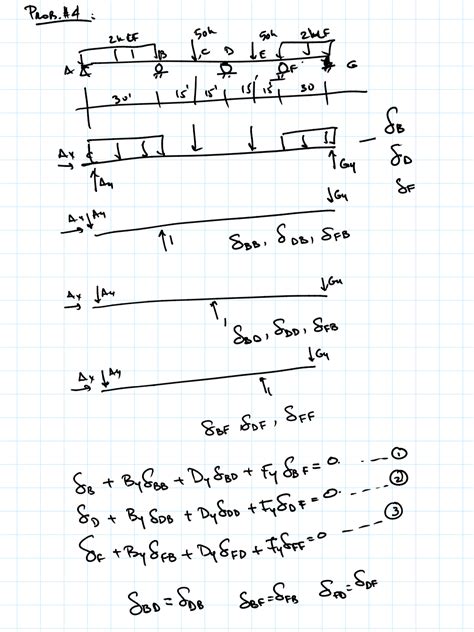 PROB. #4 :
2 kLF 50k 50k 2 kLF
A B C D E F G
30' 15' 15' 15' 15' 30
Ax Ay Gy δB
δD
δF
Ax Ay Gy
1 δBB, δDB, δFB
Ax Ay Gy
1 δBD, δDD, δFB
Ax Ay Gy
1
δBF δDF, δFF
δB + By δBB + Dy δBD + Fy δBF = 0. --- ①
δD + By δDB + Dy δDD + Fy δDF = 0. --- ②
δF + By δFB + Dy δFD + Fy δFF = 0 --- ③
δBD = δDB δBF = δFB δFD = δDF